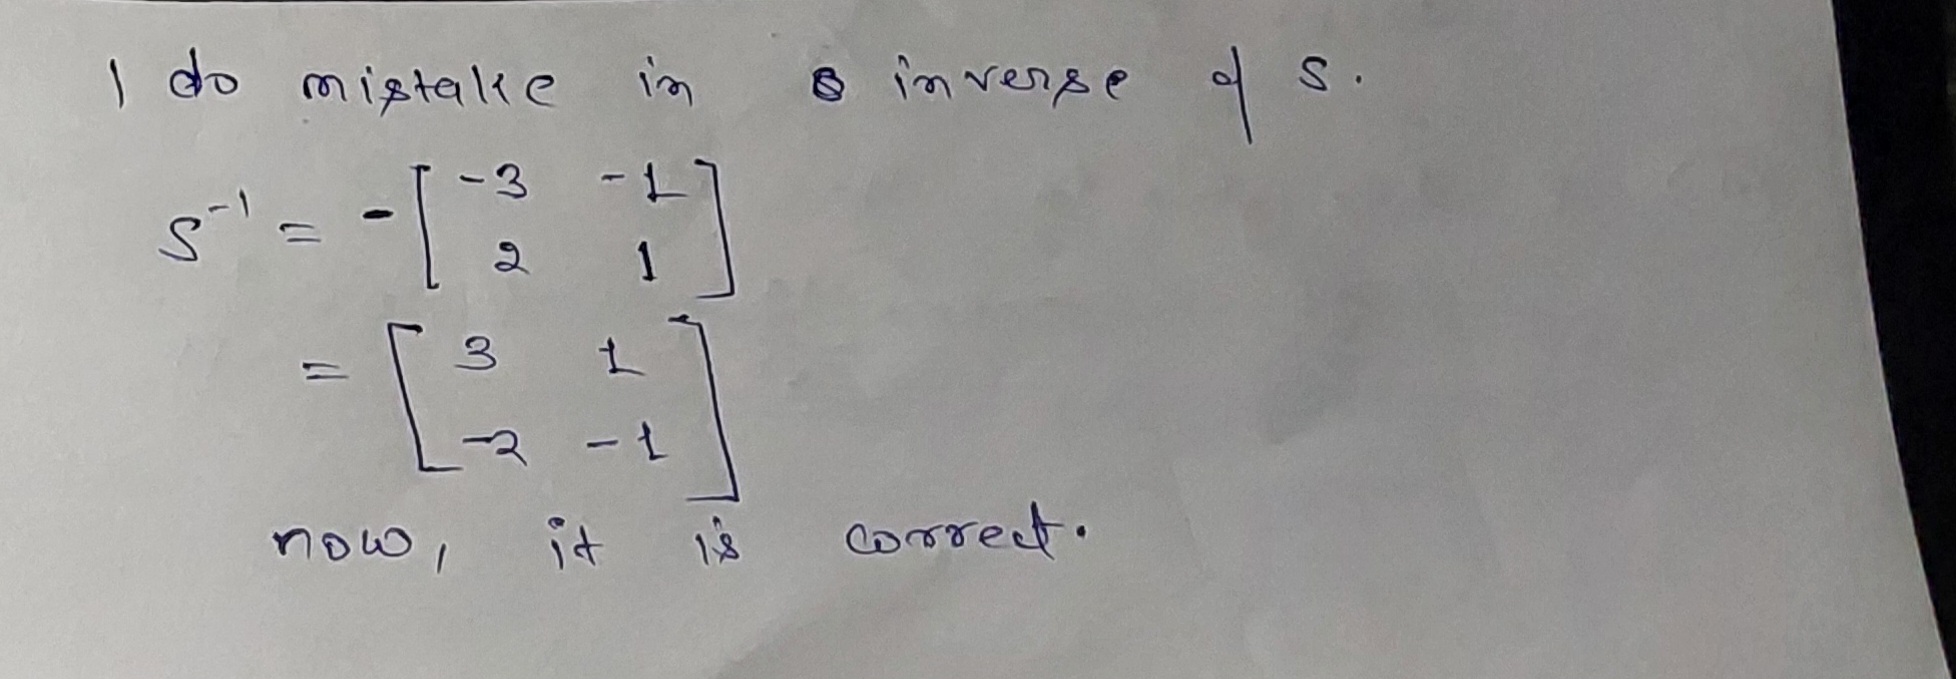 I do mistake in inverse of S.
S⁻¹ = -[ -3 -1
2 1 ]
= [ 3 1
-2 -1 ]
now, it is correct.